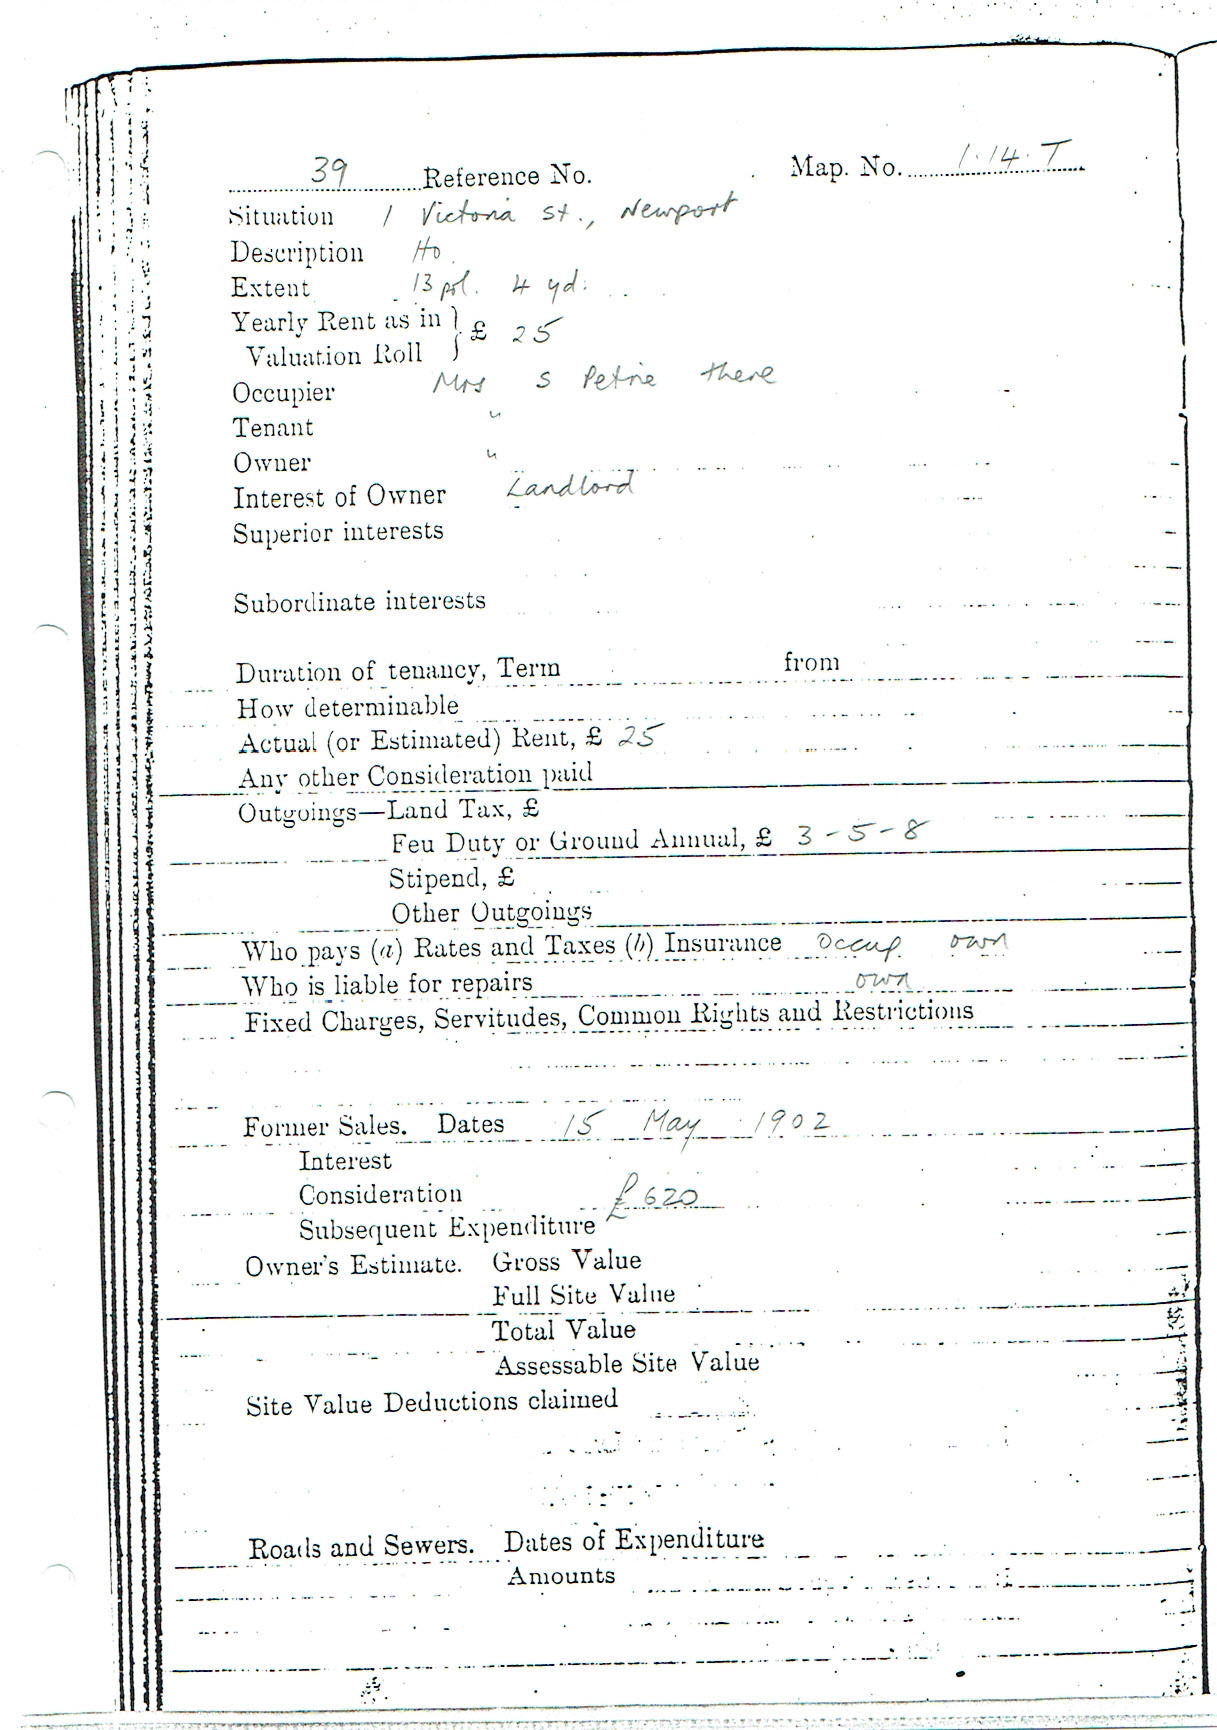 39 Reference No. Map. No. 1.14.T
Situation 1 Victoria St., Newport
Description Ho.
Extent 13 pol. 4 yd.
Yearly Rent as in } £ 25
Valuation Roll
Occupier Mrs S Petrie there
Tenant "
Owner "
Interest of Owner Landlord
Superior interests
Subordinate interests
Duration of tenancy, Term from
How determinable
Actual (or Estimated) Rent, £ 25
Any other Consideration paid
Outgoings—Land Tax, £
Feu Duty or Ground Annual, £ 3-5-8
Stipend, £
Other Outgoings
Who pays (a) Rates and Taxes (b) Insurance Occup own
Who is liable for repairs own
Fixed Charges, Servitudes, Common Rights and Restrictions
Former Sales. Dates 15 May 1902
Interest
Consideration £620
Subsequent Expenditure
Owner's Estimate. Gross Value
Full Site Value
Total Value
Assessable Site Value
Site Value Deductions claimed
Roads and Sewers. Dates of Expenditure
Amounts